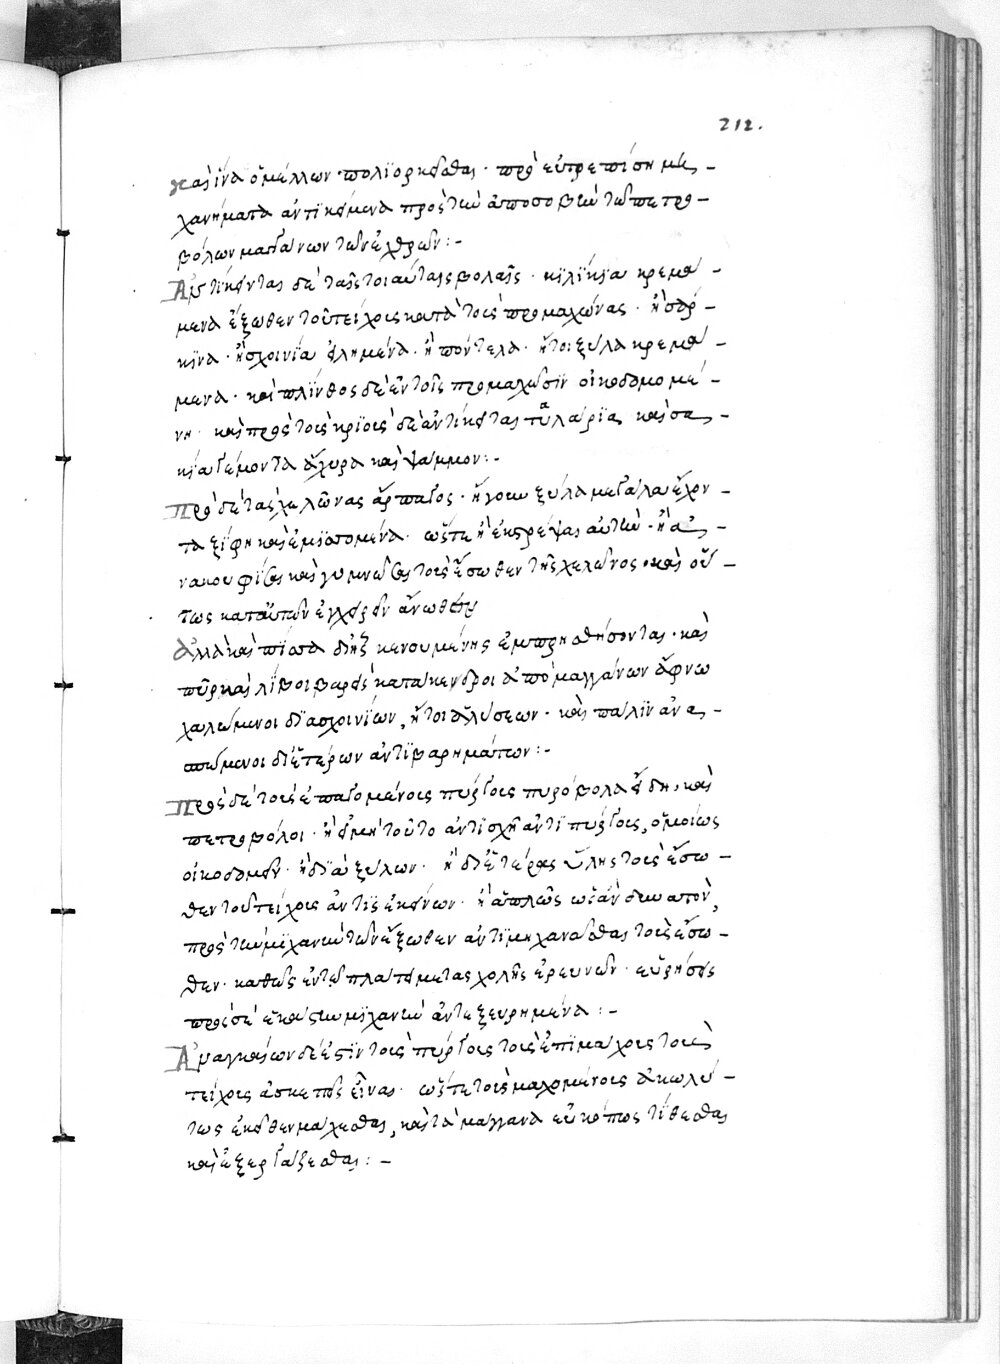 212.
καὶ ἵνα ὁ μέλλων πολϊορκεῖσθαι· προευτρεπίση μη-
χανήματα ἀντικείμενα πρὸς τὴν ἀποσοβὴν τῶν πετρο-
βόλων μαγγάνων τῶν ἐχθρῶν:-
Ἀντίκεινται δὲ ταῖς τοιαύταις βολαῖς· κιλίκϊα κρεμά-
μενα ἔξωθεν τοῦ τείχους κατὰ τοὺς προμαχῶνας· ἢ σάρ-
κϊνα· ἢ σχοινία εἰλημένα· ἢ πόντελα· ἤτοι ξύλα κρεμά-
μενα· καὶ πλίνθος δὲ ἐν τοῖς προμαχῶσϊν οἰκοδομομέ-
νη· καὶ πρὸς τοὺς κριοὺς δὲ ἀντίκεινται τυλάρϊα καὶ σα-
κία γέμοντα ἄχυρα καὶ ψάμμον:-
Πρὸ δὲ τὰς χελώνας ἅρπαγος· ἤγουν ξύλα μεγάλα ἔχον-
τα ξίφη καὶ ἐμϊπομένα· ὥστε ἢ ἐκτρέψαι αὐτὴν· ἢ ἀ-
νακουφίσαι καὶ γυμνῶσαι τοὺς ἔσωθεν τῆς χελώνος· καὶ οὕ-
τως κατ' αὐτῶν ἐγχρεῖν ἄνωθεν
ἀλλὰ καὶ πίσσα διηξ κενουμένης ἐμπρησθήσονται· καὶ
πῦρ καὶ λίθοι βαρεῖς κατακενδροι ἀπὸ μαγγάνων ἄφνω
χαλώμενοι διὰ σχοινίων, ἤτοι ἁλύσεων· καὶ πάλϊν ἀνα-
σπώμενοι δι' ἑτέρων ἀντϊβαρημάτων:-
Πρὸς δὲ τοὺς ἐπαγομένους πύργους πυρόβολα εἴδη, καὶ
πετροβόλοι· ἢ εἰ μὴ τοῦτο ἀντϊσχῆ ἀντϊπύργους, ὁμοίως
οἰκοδομεῖν· ἢ διὰ ξύλων· ἢ δι' ἑτέρας ὕλης τοὺς ἔσω-
θεν τοῦ τείχους ἀντὶς ἐκείνων· ἢ ἁπλῶς ὡς ἂν δυνατὸν,
πρὸς τὴν μϊχανὴν τῶν ἔξωθεν ἀντιμηχανᾶσθαι τοὺς ἔσω-
θεν· καθὼς ἐν τῶ πλάτει μετὰ σχολῆς ἐρευνῶν· εὑρήσεις
πρὸς δὲ ἑκάστην μϊχανὴν ἀντεξευρημένα:-
Ἀναγκαίων δέ ἐστϊν τοὺς πύργους τοὺς ἐπϊμάχους τοὺς
τείχους ἀσκεπεῖς εἶναι· ὥστε τοὺς μαχομένους ἀκωλύ-
τως ἐκεῖθεν μάχεσθαι, καὶ τὰ μάγγανα εὐκόπως τίθεσθαι
καὶ ἐξεργάζεσθαι:-